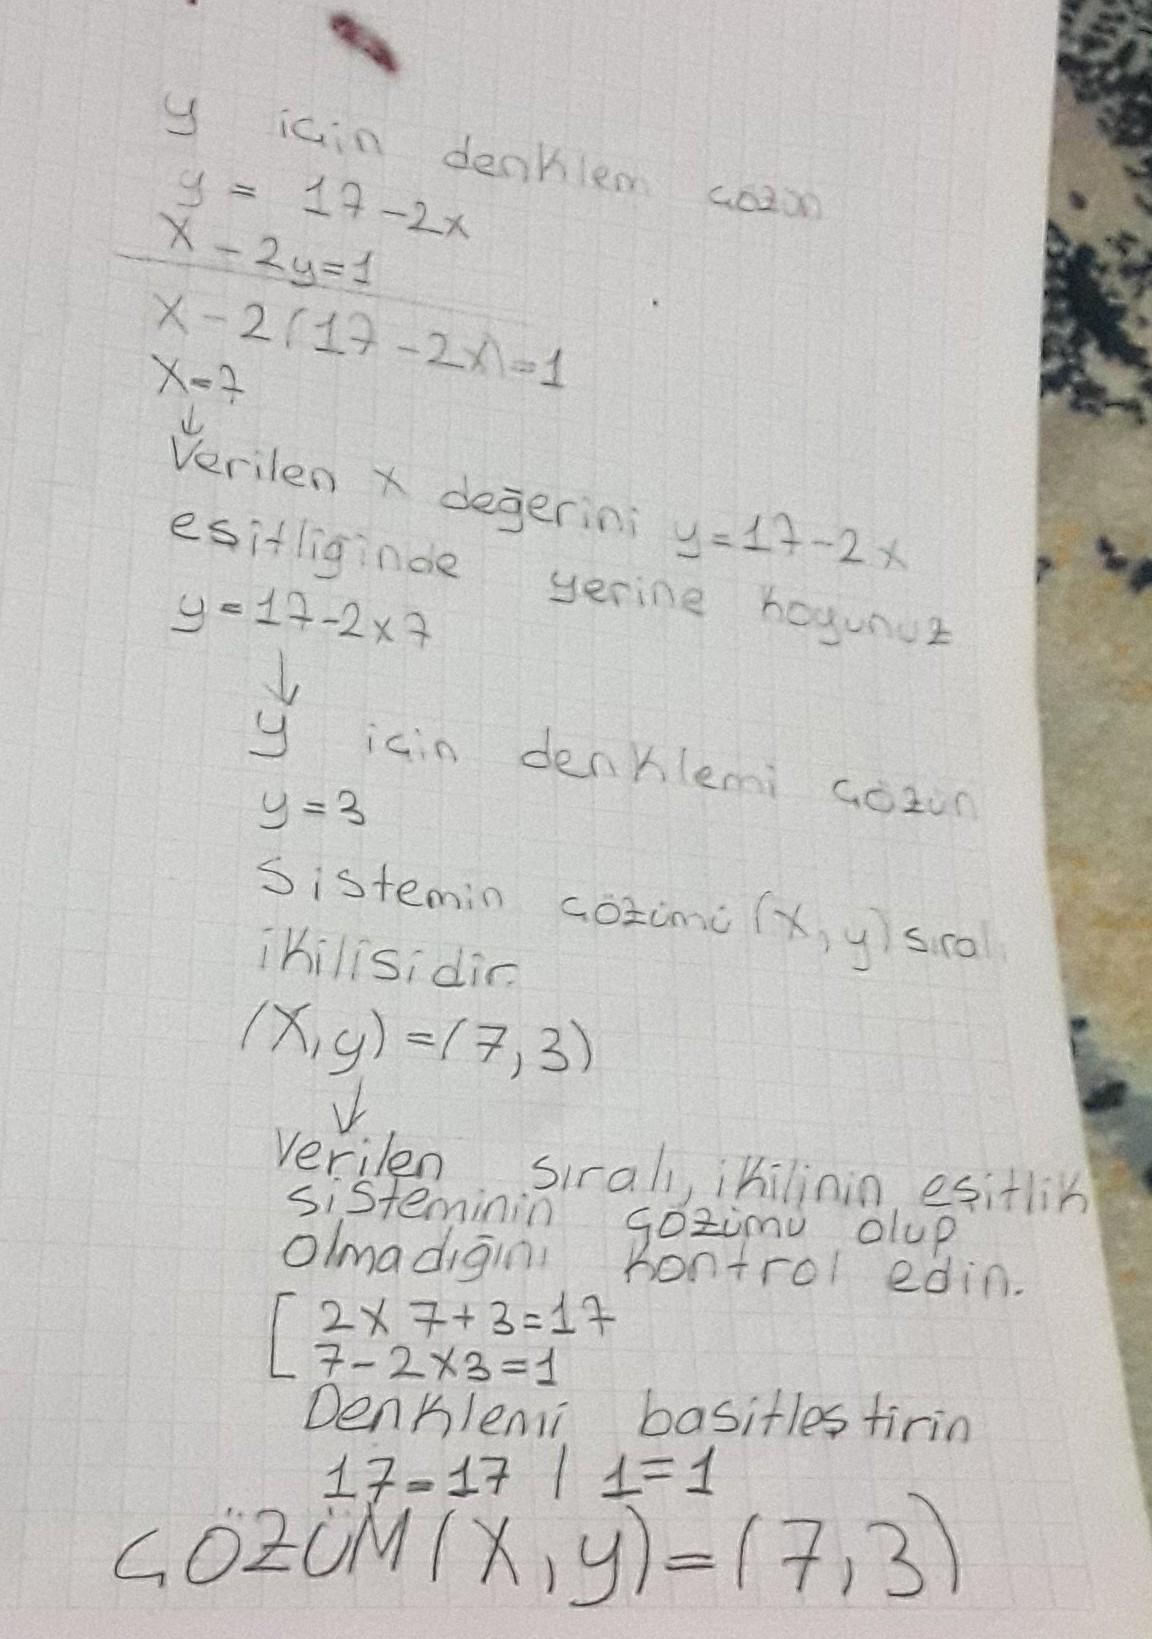 y için denklem çözün
y = 17-2x
x-2y=1
x-2(17-2x)=1
x=7
↓
Verilen x değerini y=17-2x
eşitliğinde yerine koyunuz
y=17-2x7
↓
y için denklemi çözün
y=3
Sistemin çözümü (x,y) sıralı
ikilisidir.
(x,y)=(7,3)
↓
Verilen sıralı, ikilinin eşitlik
sisteminin çözümü olup
olmadığını kontrol edin.
[ 2x7+3=17
7-2x3=1
Denklemi basitleştirin
17=17 / 1=1
ÇÖZÜM(X,y)=(7,3)